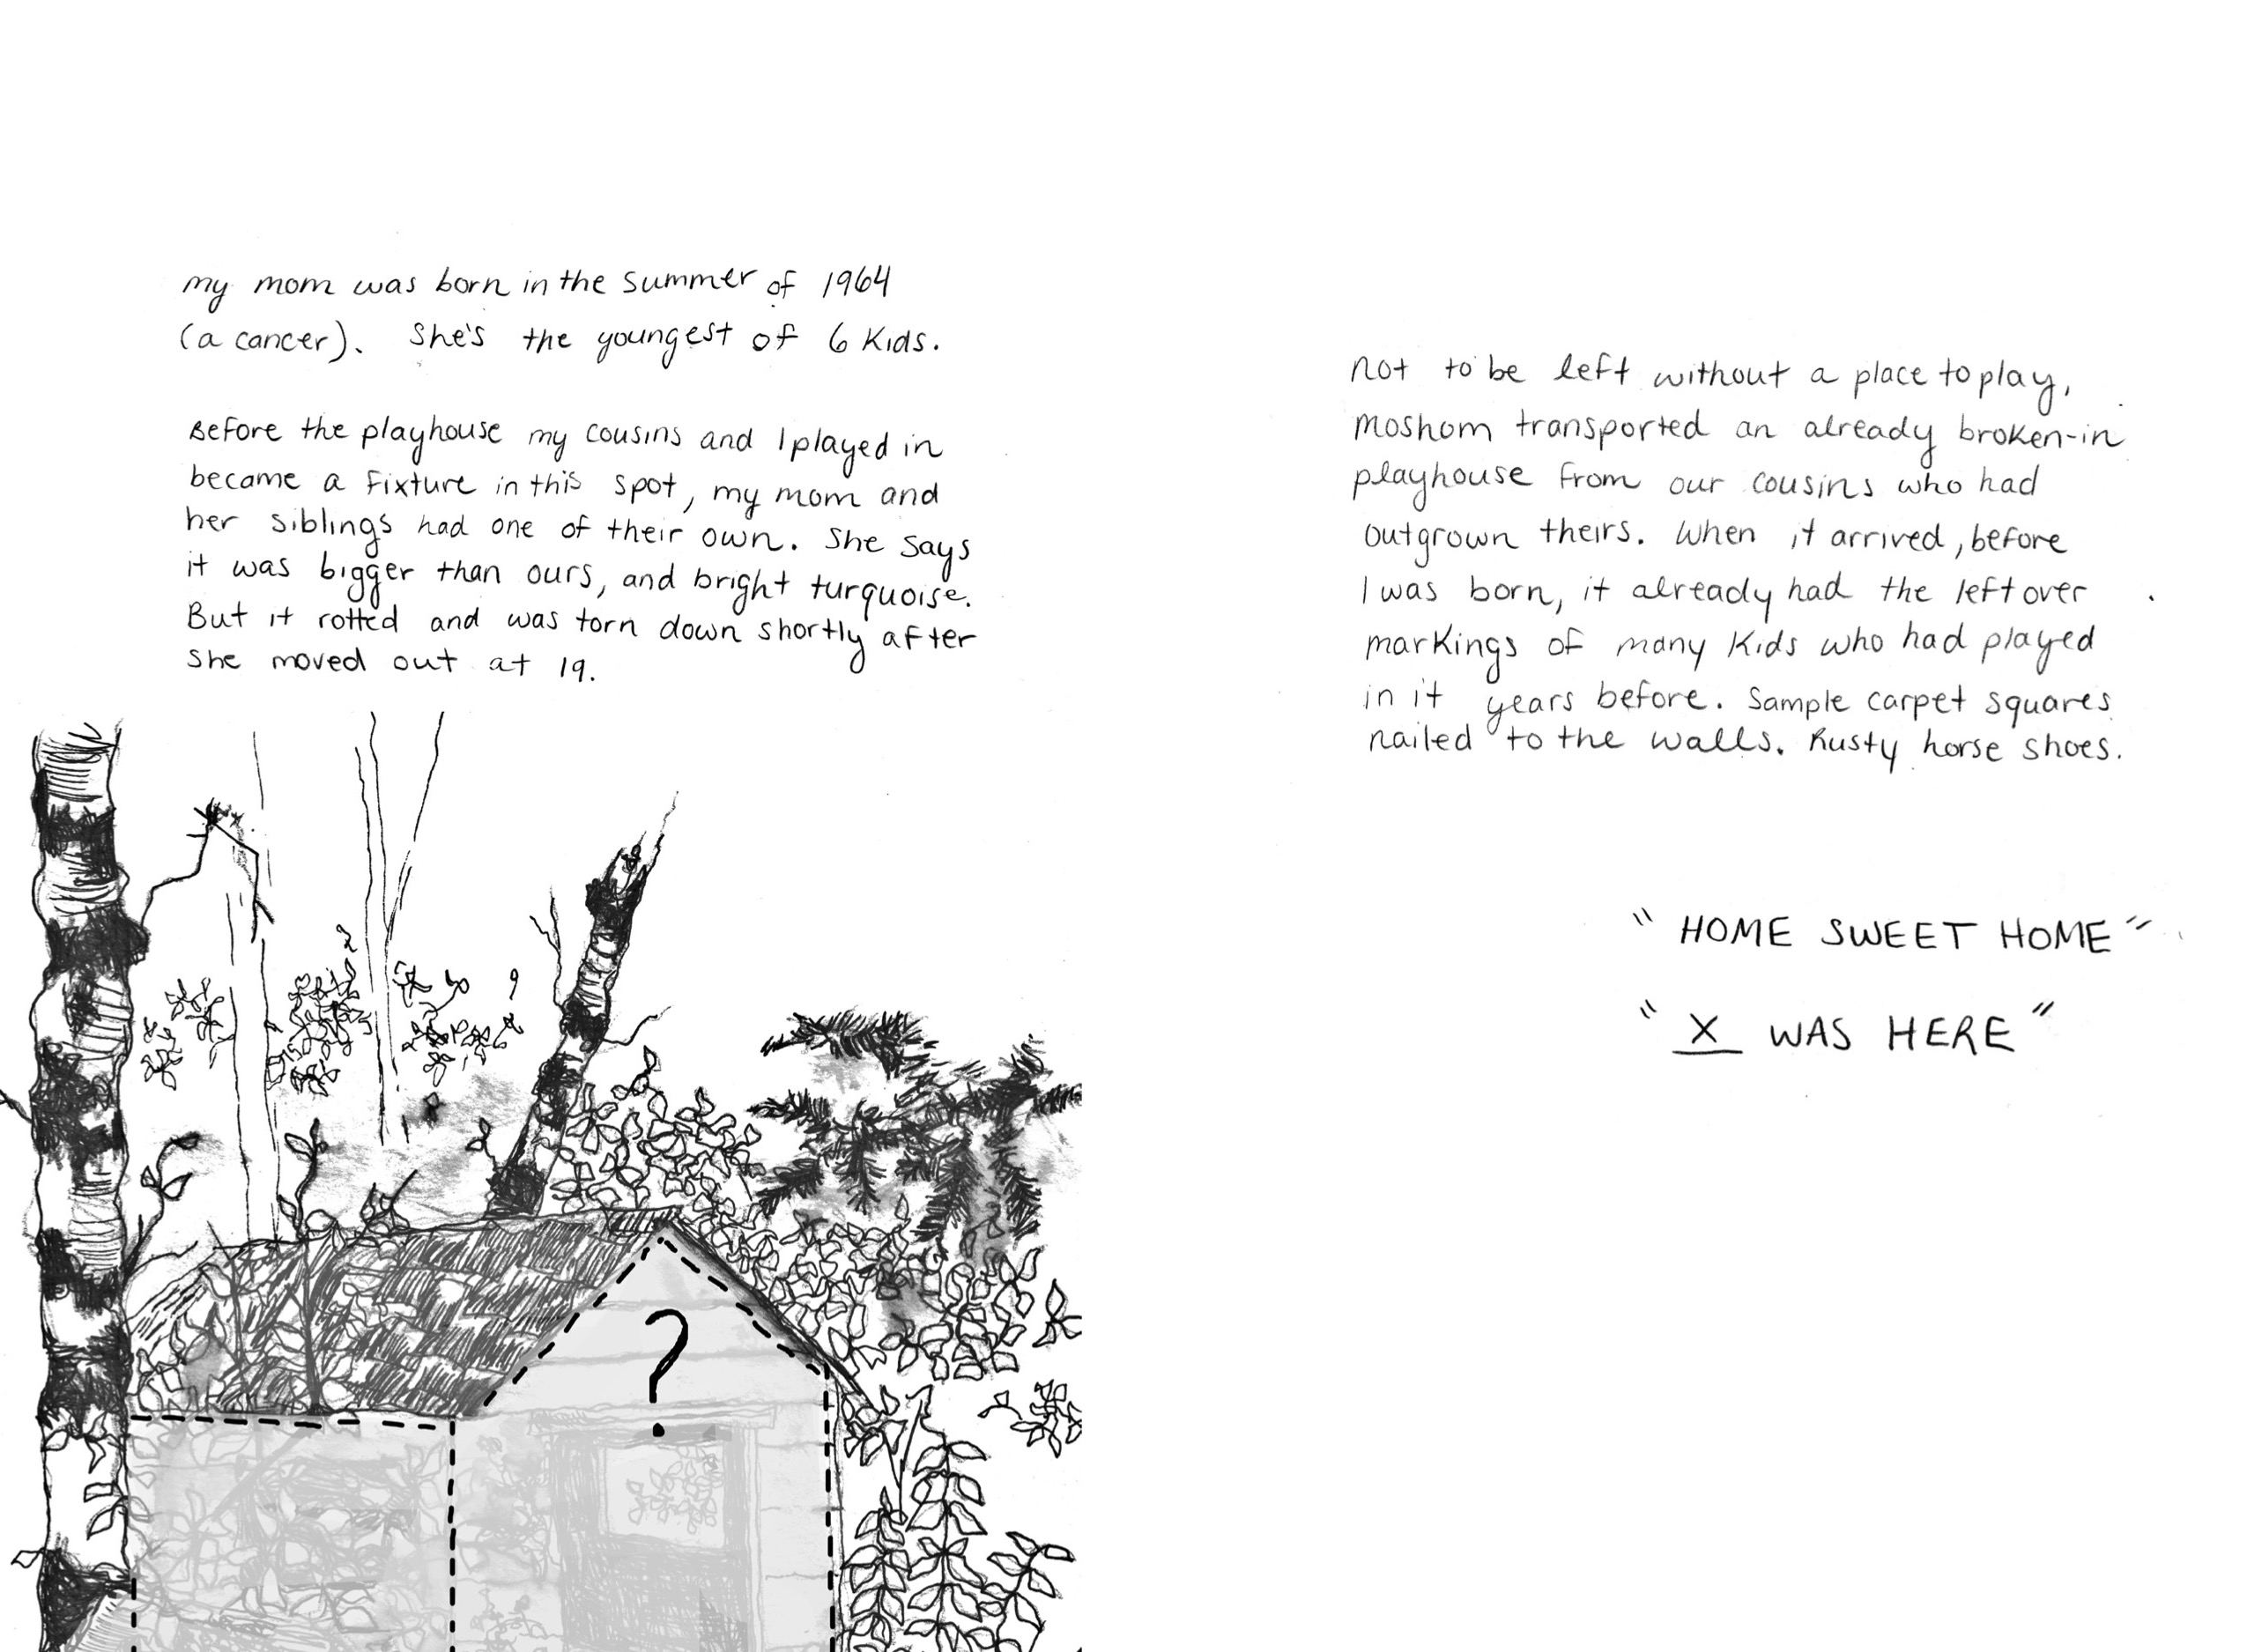 my mom was born in the summer of 1964
(a cancer). She's the youngest of 6 kids.
Before the playhouse my cousins and I played in
became a fixture in this spot, my mom and
her siblings had one of their own. She says
it was bigger than ours, and bright turquoise.
But it rotted and was torn down shortly after
she moved out at 19.
?
not to be left without a place to play,
moshom transported an already broken-in
playhouse from our cousins who had
outgrown theirs. When it arrived, before
I was born, it already had the left over
markings of many kids who had played
in it years before. Sample carpet squares
nailed to the walls. Rusty horse shoes.
"HOME SWEET HOME"
"X WAS HERE"